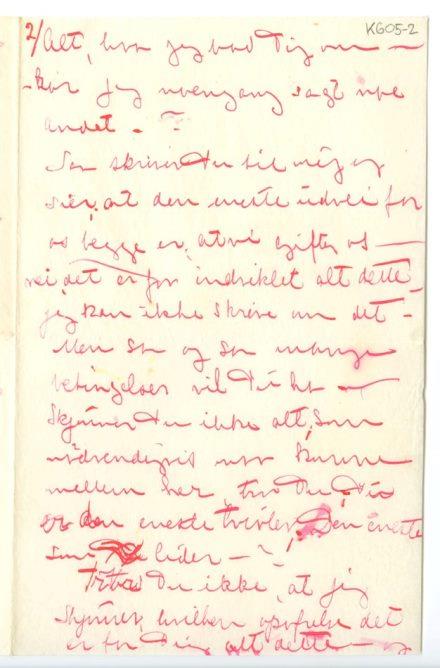 2/ Alt, hva jeg bad Dig om —
- har jeg noengang sagt noe
andet. - ~
K605-2
Saa skriver Du til mig og
sier, at den eneste udvei for
os begge er, at vi gifter os —
nei, det er for indviklet alt dette
jeg kan ikke skrive om det -
Men saa og saa mange
betingelser vil Du ha —
Skjønner Du ikke alt, som
nødvendigvis maa komme
mellem her, tror Du, Du
er den eneste tviler, Den eneste
som lider - ~
Tror Du ikke, at jeg
skjønner, hvilken opofrelse det
er for Dig alt dette —